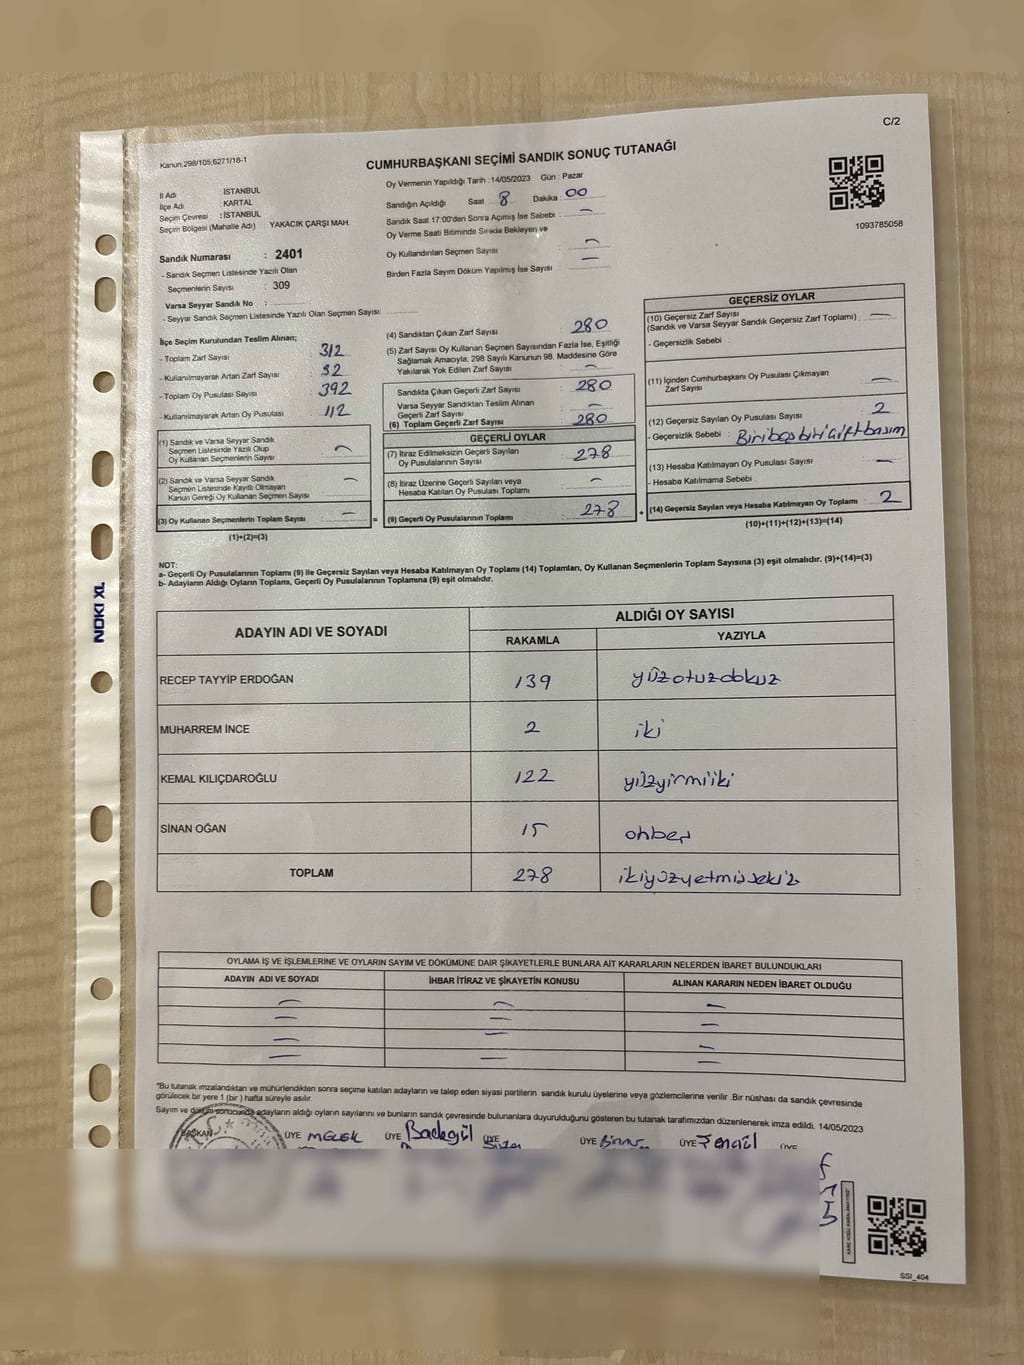 C/2
Kanun.298/105,6271/18-1
CUMHURBAŞKANI SEÇİMİ SANDIK SONUÇ TUTANAĞI
1093785058
İl Adı İSTANBUL
İlçe Adı KARTAL
Seçim Çevresi : İSTANBUL
Seçim Bölgesi (Mahalle Adı) YAKACIK ÇARŞI MAH.
Sandık Numarası : 2401
- Sandık Seçmen Listesinde Yazılı Olan
Seçmenlerin Sayısı : 309
Varsa Seyyar Sandık No :
- Seyyar Sandık Seçmen Listesinde Yazılı Olan Seçmen Sayısı:
Oy Vermenin Yapıldığı Tarih : 14/05/2023 Gün : Pazar
Sandığın Açıldığı Saat 8 Dakika : 00
Sandık Saat 17:00'den Sonra Açımış İse Sebebi : -
Oy Verme Saati Bitiminde Sırada Bekleyen ve
Oy Kullandırılan Seçmen Sayısı : -
Birden Fazla Sayım Döküm Yapılmış İse Sayısı : -
İlçe Seçim Kurulundan Teslim Alınan;
- Toplam Zarf Sayısı : 312
- Kullanılmayarak Artan Zarf Sayısı : 32
- Toplam Oy Pusulası Sayısı : 392
- Kullanılmayarak Artan Oy Pusulası : 112
(1) Sandık ve Varsa Seyyar Sandık
Seçmen Listesinde Yazılı Olup
Oy Kullanan Seçmenlerin Sayısı : -
(2) Sandık ve Varsa Seyyar Sandık
Seçmen Listesinde Kayıtlı Olmayan
Kanun Gereği Oy Kullanan Seçmen Sayısı : -
(3) Oy Kullanan Seçmenlerin Toplam Sayısı : - =
(1)+(2)=(3)
(4) Sandıktan Çıkan Zarf Sayısı : 280
(5) Zarf Sayısı Oy Kullanan Seçmen Sayısından Fazla İse, Eşitliği
Sağlamak Amacıyla, 298 Sayılı Kanunun 98. Maddesine Göre
Yakılarak Yok Edilen Zarf Sayısı : -
Sandıkta Çıkan Geçerli Zarf Sayısı : 280
Varsa Seyyar Sandıktan Teslim Alınan
Geçerli Zarf Sayısı : -
(6) Toplam Geçerli Zarf Sayısı : 280
GEÇERLİ OYLAR
(7) İtiraz Edilmeksizin Geçerli Sayılan
Oy Pusulalarının Sayısı : 278
(8) İtiraz Üzerine Geçerli Sayılan veya
Hesaba Katılan Oy Pusulası Toplamı : -
(9) Geçerli Oy Pusulalarının Toplamı : 278 +
GEÇERSİZ OYLAR
(10) Geçersiz Zarf Sayısı
(Sandık ve Varsa Seyyar Sandık Geçersiz Zarf Toplamı) : -
- Geçersizlik Sebebi :
(11) İçinden Cumhurbaşkanı Oy Pusulası Çıkmayan
Zarf Sayısı : -
(12) Geçersiz Sayılan Oy Pusulası Sayısı : 2
- Geçersizlik Sebebi : Biri boş biri çift basım
(13) Hesaba Katılmayan Oy Pusulası Sayısı : -
- Hesaba Katılmama Sebebi :
(14) Geçersiz Sayılan veya Hesaba Katılmayan Oy Toplamı : 2
(10)+(11)+(12)+(13)=(14)
NOT:
a- Geçerli Oy Pusulalarının Toplamı (9) ile Geçersiz Sayılan veya Hesaba Katılmayan Oy Toplamı (14) Toplamları, Oy Kullanan Seçmenlerin Toplam Sayısına (3) eşit olmalıdır. (9)+(14)=(3)
b- Adayların Aldığı Oyların Toplamı, Geçerli Oy Pusulalarının Toplamına (9) eşit olmalıdır.
ADAYIN ADI VE SOYADI ALDIĞI OY SAYISI
RAKAMLA YAZIYLA
RECEP TAYYİP ERDOĞAN 139 yüzotuzdokuz
MUHARREM İNCE 2 iki
KEMAL KILIÇDAROĞLU 122 yüzyirmiiki
SİNAN OĞAN 15 onbeş
TOPLAM 278 ikiyüzyetmişsekiz
OYLAMA İŞ VE İŞLEMLERİNE VE OYLARIN SAYIM VE DÖKÜMÜNE DAİR ŞİKAYETLERLE BUNLARA AİT KARARLARIN NELERDEN İBARET BULUNDUKLARI
ADAYIN ADI VE SOYADI İHBAR İTİRAZ VE ŞİKAYETİN KONUSU ALINAN KARARIN NEDEN İBARET OLDUĞU
*Bu tutanak imzalandıktan ve mühürlendikten sonra seçime katılan adayların ve talep eden siyasi partilerin sandık kurulu üyelerine veya gözlemcilerine verilir. Bir nüshası da sandık çevresinde
görülecek bir yere 1 (bir) hafta süreyle asılır.
Sayım ve döküm sonucunda adayların aldığı oyların sayılarını ve bunların sandık çevresinde bulunanlara duyurulduğunu gösteren bu tutanak tarafımızdan düzenlenerek imza edildi. 14/05/2023
BAŞKAN ÜYE MELEK ÜYE Badegül ÜYE ÜYE ÜYE Şengül ÜYE
SSI_404
NOKI XL